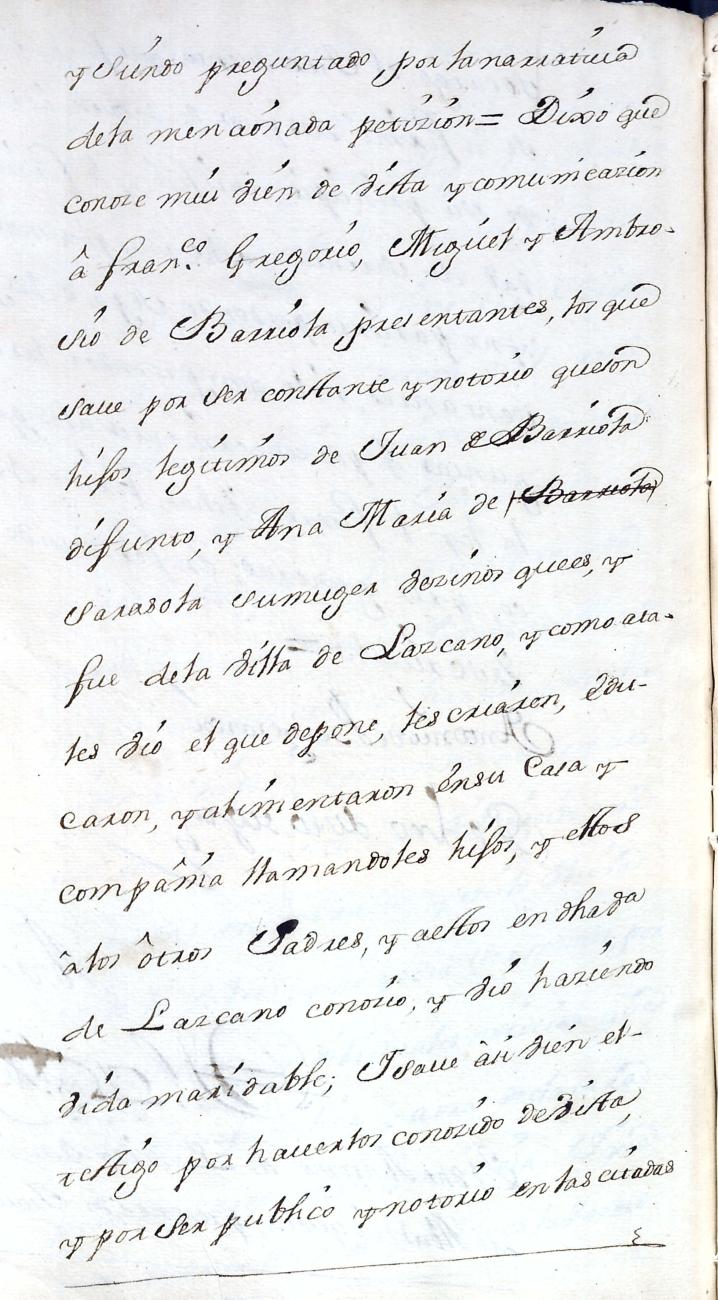 y siendo preguntado, por la narratiua
dela mencionada petizion = Dixo que
conoze mui vien de vista y comunicazion
â fran.co Gregorio, Miguel y Ambro-
sio de Barriola presentantes, los que
saue por ser constante y notorio que son
hijos legitimos de Juan de Barriola
difunto, y Ana Maria de Barriola
Sarasola sumuger vezinos quees, y
fue dela villa de Lazcano, y como ata-
les vio el que depone, les criaron, edu-
caron, y alimentaron ensu Casa y
compẫnia llamandoles hijos, y ellos
â los ôtros Padres, y aellos en dha va
de Lazcano conozio, y vio haziendo
vida maridable; I saue âsi vien el
testigo por hauerlos conozido de vista,
y por ser publico y notorio en las citadas